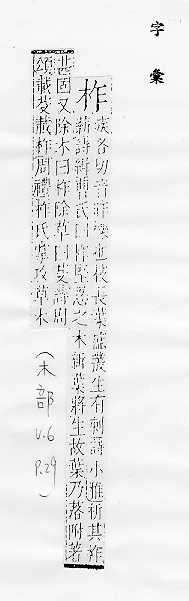 字彙
柞
疾各切音昨櫟也枝長葉盛叢生有刺詩小雅析其柞
薪詩緝曹氏曰柞堅忍之木新葉將生故葉乃落附著
甚固又除木曰柞除草曰芟詩周
頌載芟載柞周禮柞氏掌攻草木
(木部
v.6
P.29)